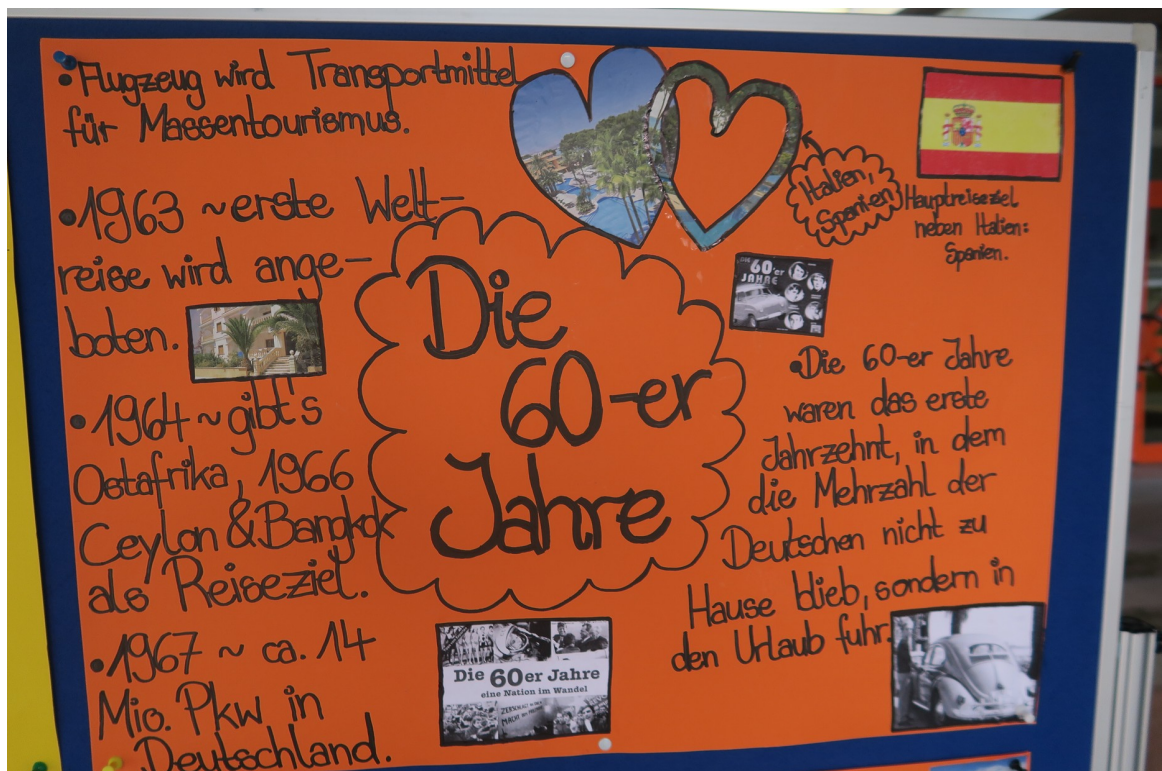 • Flugzeug wird Transportmittel
für Massentourismus.
• 1963 ~ erste Welt-
reise wird ange-
boten.
• 1964 ~ gibt's
Ostafrika, 1966
Ceylon & Bangkok
als Reiseziel.
• 1967 ~ ca. 14
Mio. Pkw in
Deutschland.
Die
60-er
Jahre
Italien,
Spanien
Hauptreiseziel
neben Italien:
Spanien.
60er
JAHRE
• Die 60-er Jahre
waren das erste
Jahrzehnt, in dem
die Mehrzahl der
Deutschen nicht zu
Hause blieb, sondern in
den Urlaub fuhr.
Die 60er Jahre
eine Nation im Wandel